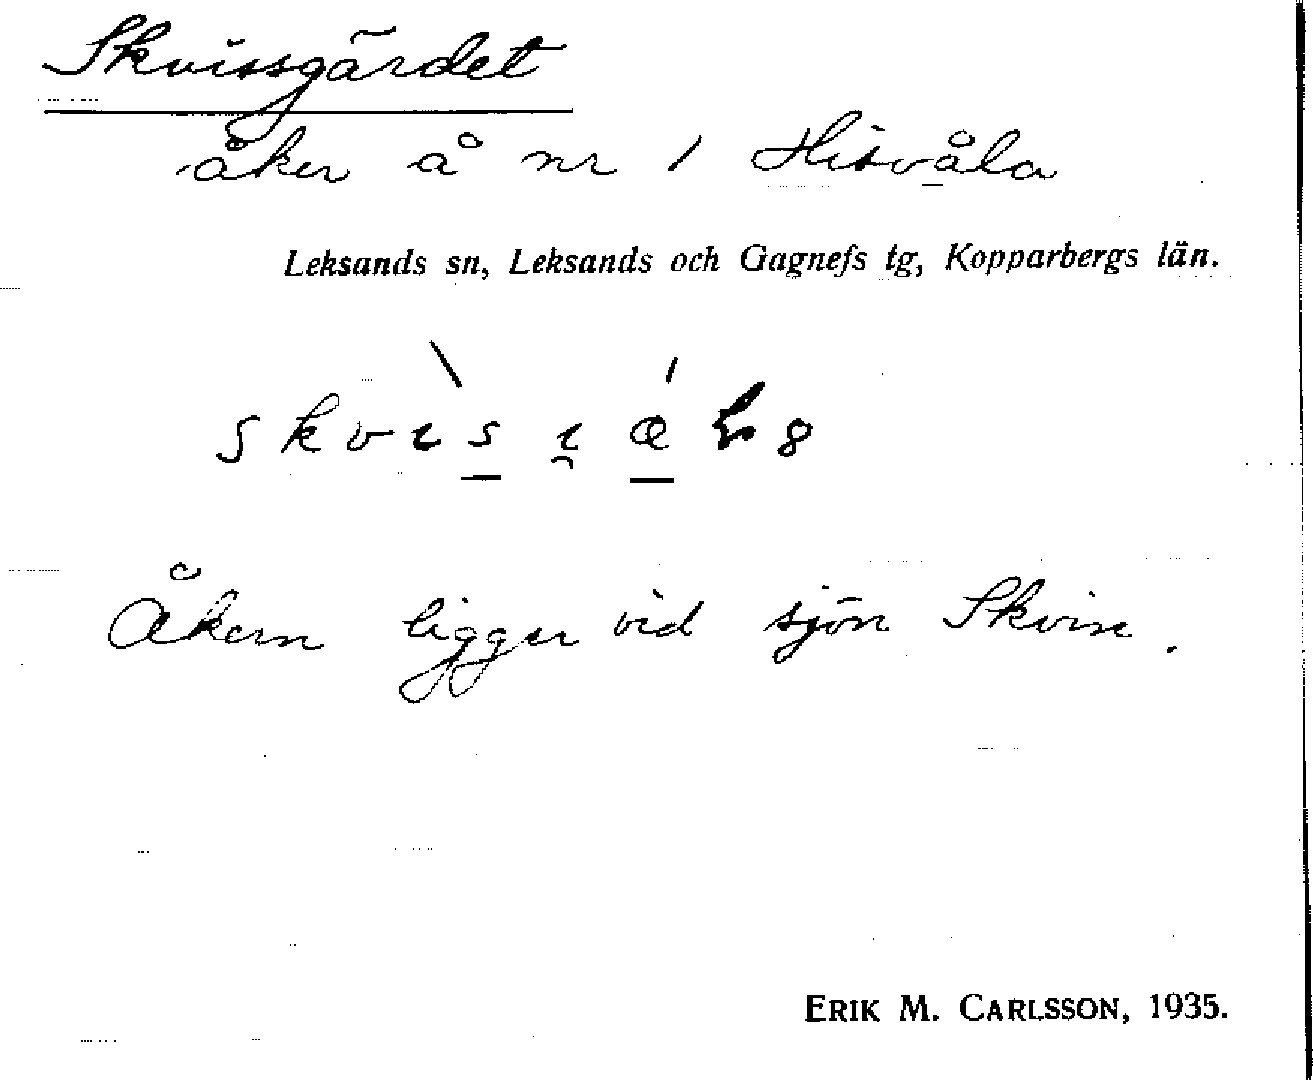 Skvissgärdet
åker å nr 1 Hisvåla
Leksands sn, Leksands och Gagnefs tg, Kopparbergs län.
Åkern ligger vid sjön Skvise.
ERIK M. CARLSSON, 1935.